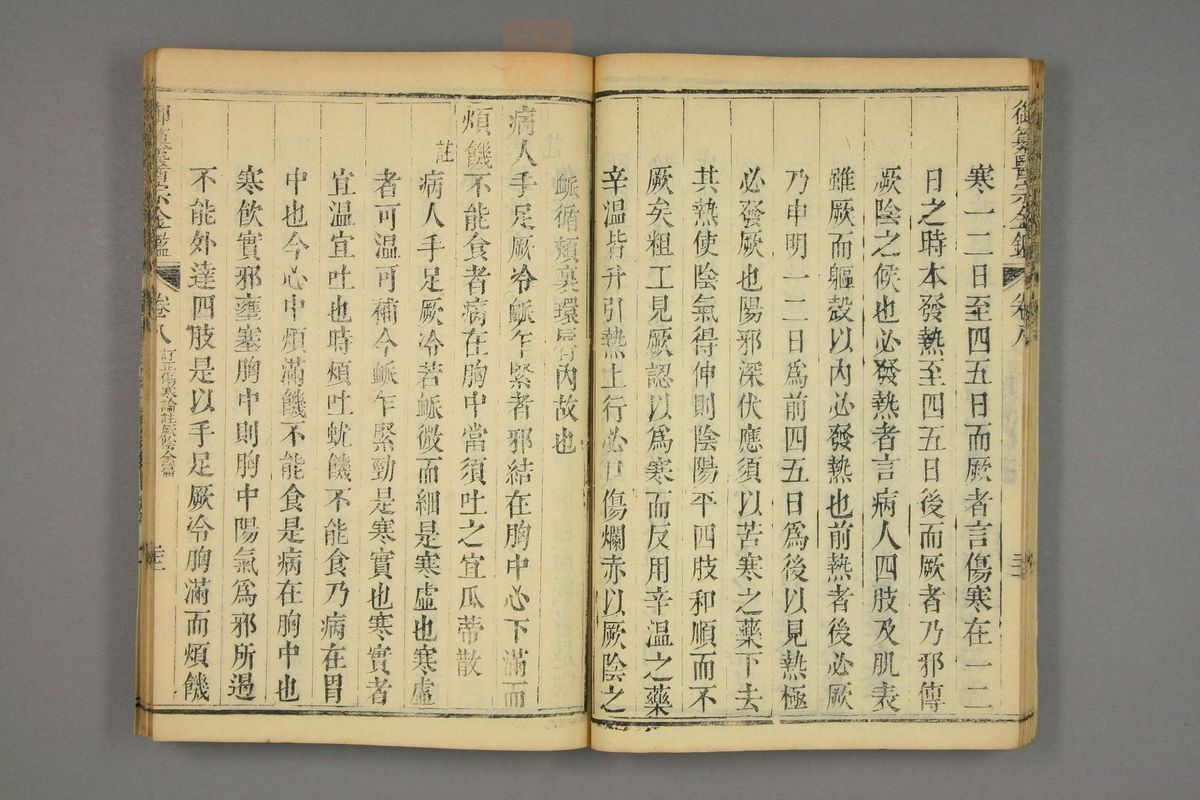 御纂醫宗金鑑 卷八
寒一二日至四五日而厥者言傷寒在一二
日之時本發熱至四五日後而厥者乃邪傳
厥陰之候也必發熱者言病人四肢及肌表
雖厥而軀殼以內必發熱也前熱者後必厥
乃申明一二日爲前四五日爲後以見熱極
必發厥也陽邪深伏應須以苦寒之藥下去
其熱使陰氣得伸則陰陽平四肢和順而不
厥矣粗工見厥認以爲寒而反用辛溫之藥
辛溫皆升引熱上行必口傷爛赤以厥陰之
脈循頰裏環唇內故也
病人手足厥冷脈乍緊者邪結在胸中心下滿而
煩饑不能食者病在胸中當須吐之宜瓜蒂散
註
病人手足厥冷若脈微而細是寒虛也寒虛
者可溫可補今脈乍緊勁是寒實也寒實者
宜溫宜吐也時煩吐蚘饑不能食乃病在胃
中也今心中煩滿饑不能食是病在胸中也
寒飲實邪壅塞胸中則胸中陽氣爲邪所遏
不能外達四肢是以手足厥冷胸滿而煩饑
御纂醫宗金鑑 卷八 訂正傷寒論註厥陰全篇